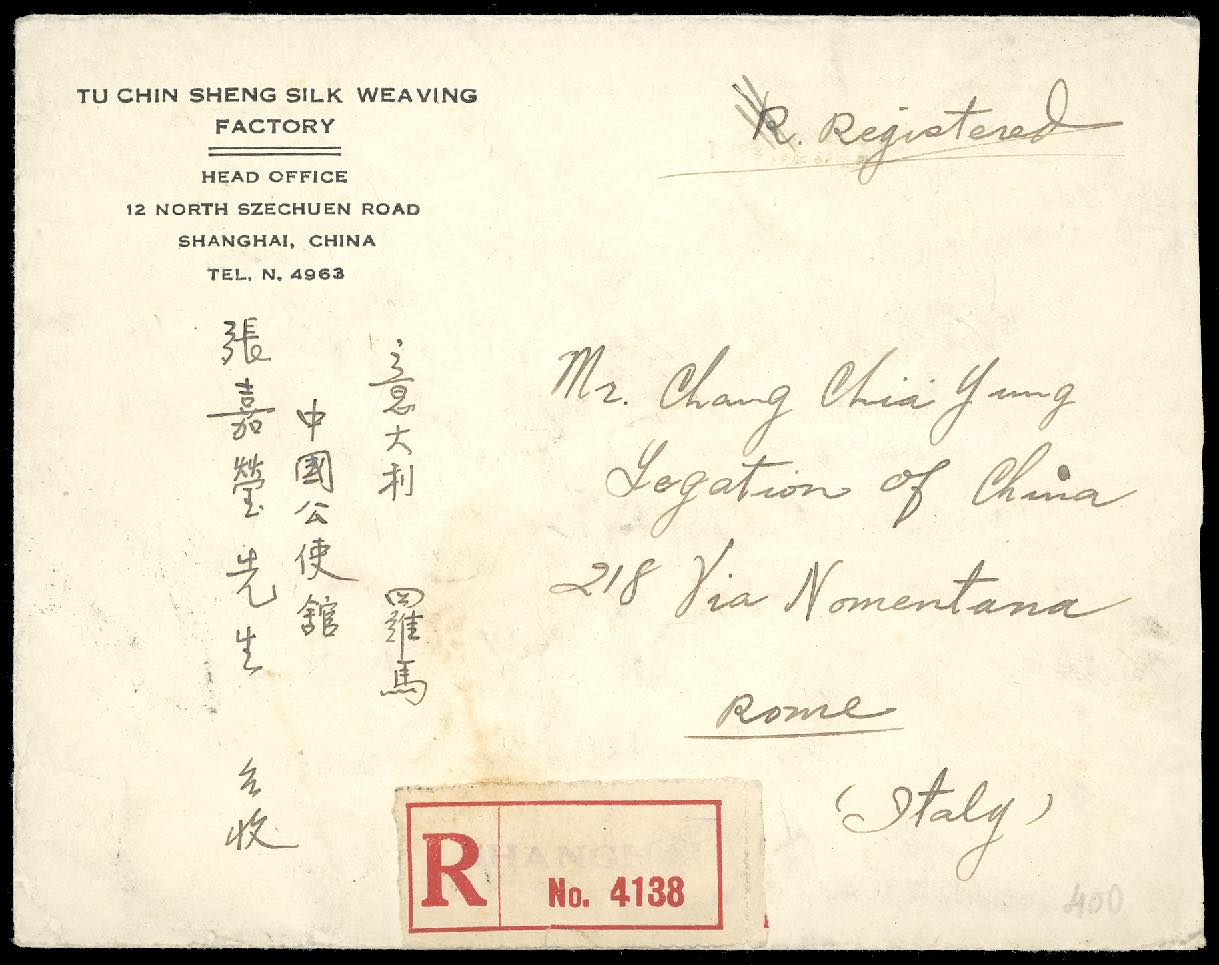 TU CHIN SHENG SILK WEAVING
FACTORY
HEAD OFFICE
12 NORTH SZECHUEN ROAD
SHANGHAI, CHINA
TEL. N. 4963
R. Registered
意大利 羅馬
中國公使館
張嘉瑩先生 台收
Mr. Chang Chia Yung
Legation of China
218 Via Nomentana
Rome
(Italy)
R
SHANGHAI
No. 4138
400